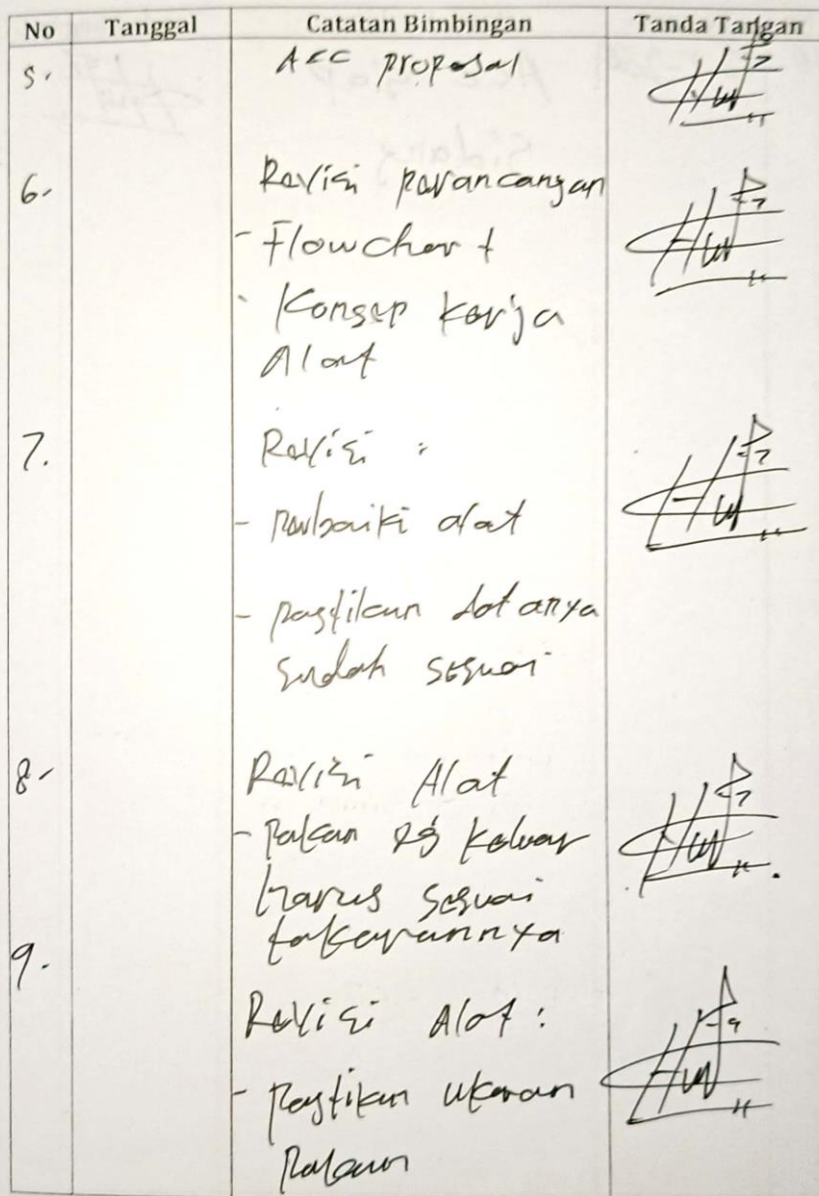 No Tanggal Catatan Bimbingan Tanda Tangan
5. ACC proposal
6. Revisi perancangan
- Flowchart
- Konsep kerja
Alat
7. Revisi :
- perbaiki alat
- pastikan datanya
sudah sesuai
8. Revisi Alat
- Pakan yg keluar
harus sesuai
takarannya
9.
Revisi Alat :
- Pastikan ukuran
Pakan